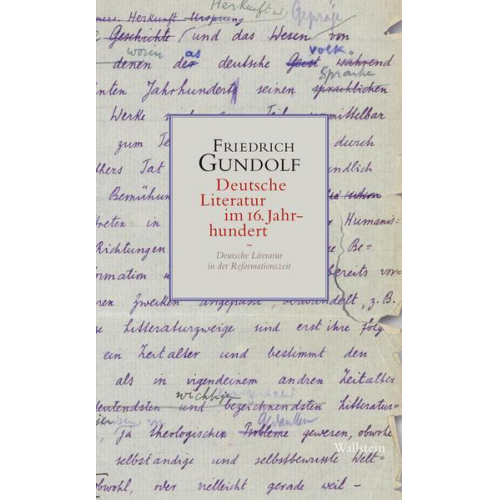 nere Herkunft Ursprung Herkunft u. Gepräge
Geschichte und das Wesen von
worin as volk
denen der deutsche Geist während
Sprache
nten Jahrhunderts seinen sprachlichen
Werke Teil mittelbar
zum Te durch
thers Tat ndlich
Bemühun schon
treten in Humanis-
Richtungen Be-
rmation u bereits vor-
ren Zwecken angepasst, verwandelt, z.B.
e Litteraturzweige und erst ihre folg
ein Zeitalter und bestimmt den
als in irgendeinem andren Zeitalter
wichtig
deutendsten und bezeichnendsten Litteratur-
Gedanken
, ja theologische Probleme gewesen, obwohl
selbständige und selbstbewusste Welt-
Obwohl, oder vielleicht gerade weil -
FRIEDRICH
GUNDOLF
Deutsche
Literatur
im 16. Jahr-
hundert
~
Deutsche Literatur
in der Reformationszeit
Wallstein